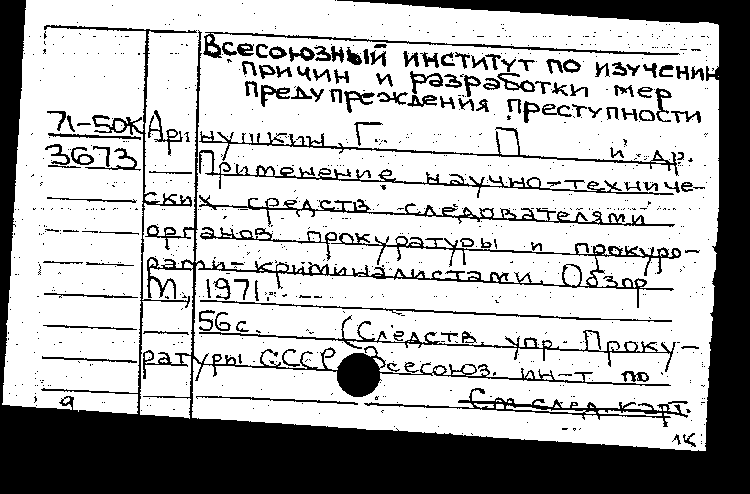 Всесоюзный институт по изучению
причин и разработки мер
предупреждения преступности
71-50К Аринушкин, Г. П и др.
3673 Применение научно-техниче-
ских средств следователями
органов прокуратуры и прокуро-
рами-криминалистами. Обзор
М., 1971.
56 с. (Следств. упр. Проку-
ратуры СССР Всесоюз. ин-т по
См след. карт.
9
1К